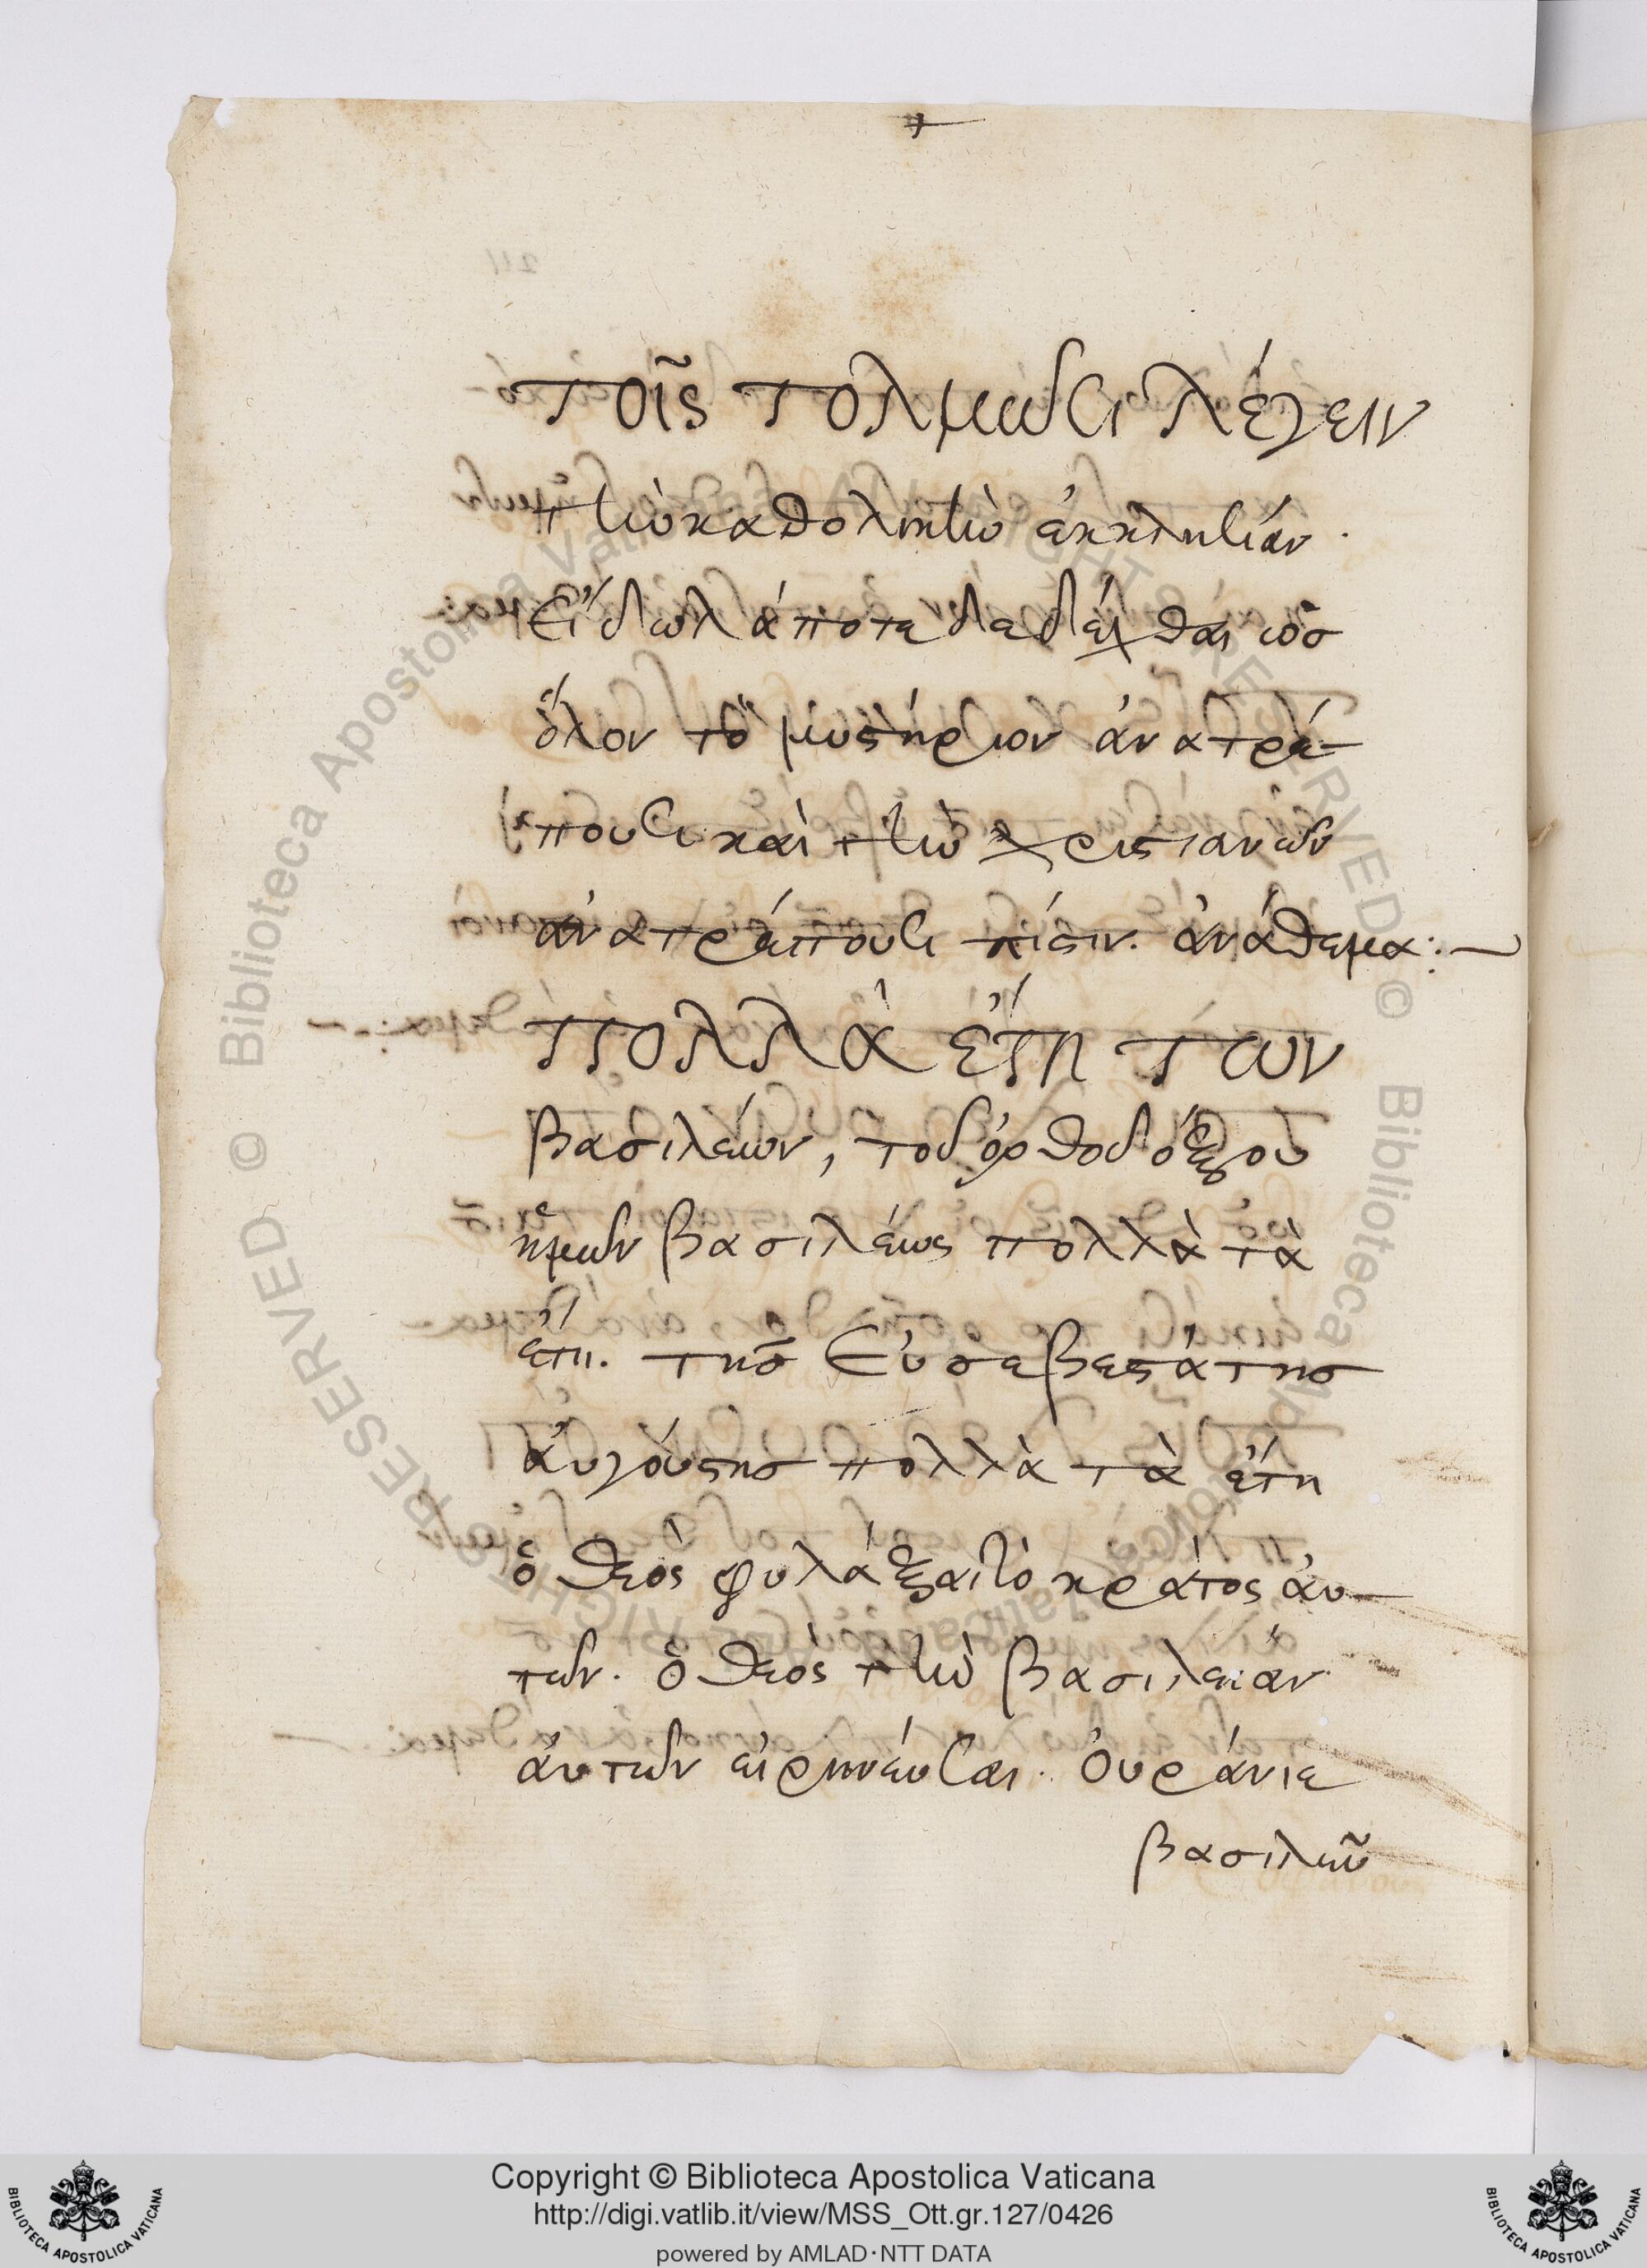 τοῖς τολμῶσι λέγειν
τὴν καθολικὴν ἐκκλησίαν.
Εἴδωλά ποτε δεδέχθαι ὡς
ὅλον τὸ μυστήριον ἀνατρέ-
πουσι καὶ τὴν χριστιανῶν
ἀνατρέπουσι πίστιν. ἀνάθεμα:—
πολλὰ ἔτη των
βασιλέων, τοῦ ὀρθοδόξου
ἡμῶν βασιλέως πολλὰ τὰ
ἔτη. τῆς Εὐσεβεστάτης
ἀυγούστης πολλὰ τὰ ἔτη
ὁ θεὸς φυλάξαι τὸ κράτος ἀυ-
τῶν. ὁ θεὸς τὴν βασιλείαν
ἀυτῶν εἰρηνέυσαι. Ὀυράνιε
βασιλεῦ
© Biblioteca Apostolica Vaticana ALL RIGHTS RESERVED © Biblioteca Apostolica Vaticana ALL RIGHTS RESERVED
Copyright © Biblioteca Apostolica Vaticana
http://digi.vatlib.it/view/MSS_Ott.gr.127/0426
powered by AMLAD·NTT DATA
BIBLIOTECA APOSTOLICA VATICANA
BIBLIOTECA APOSTOLICA VATICANA